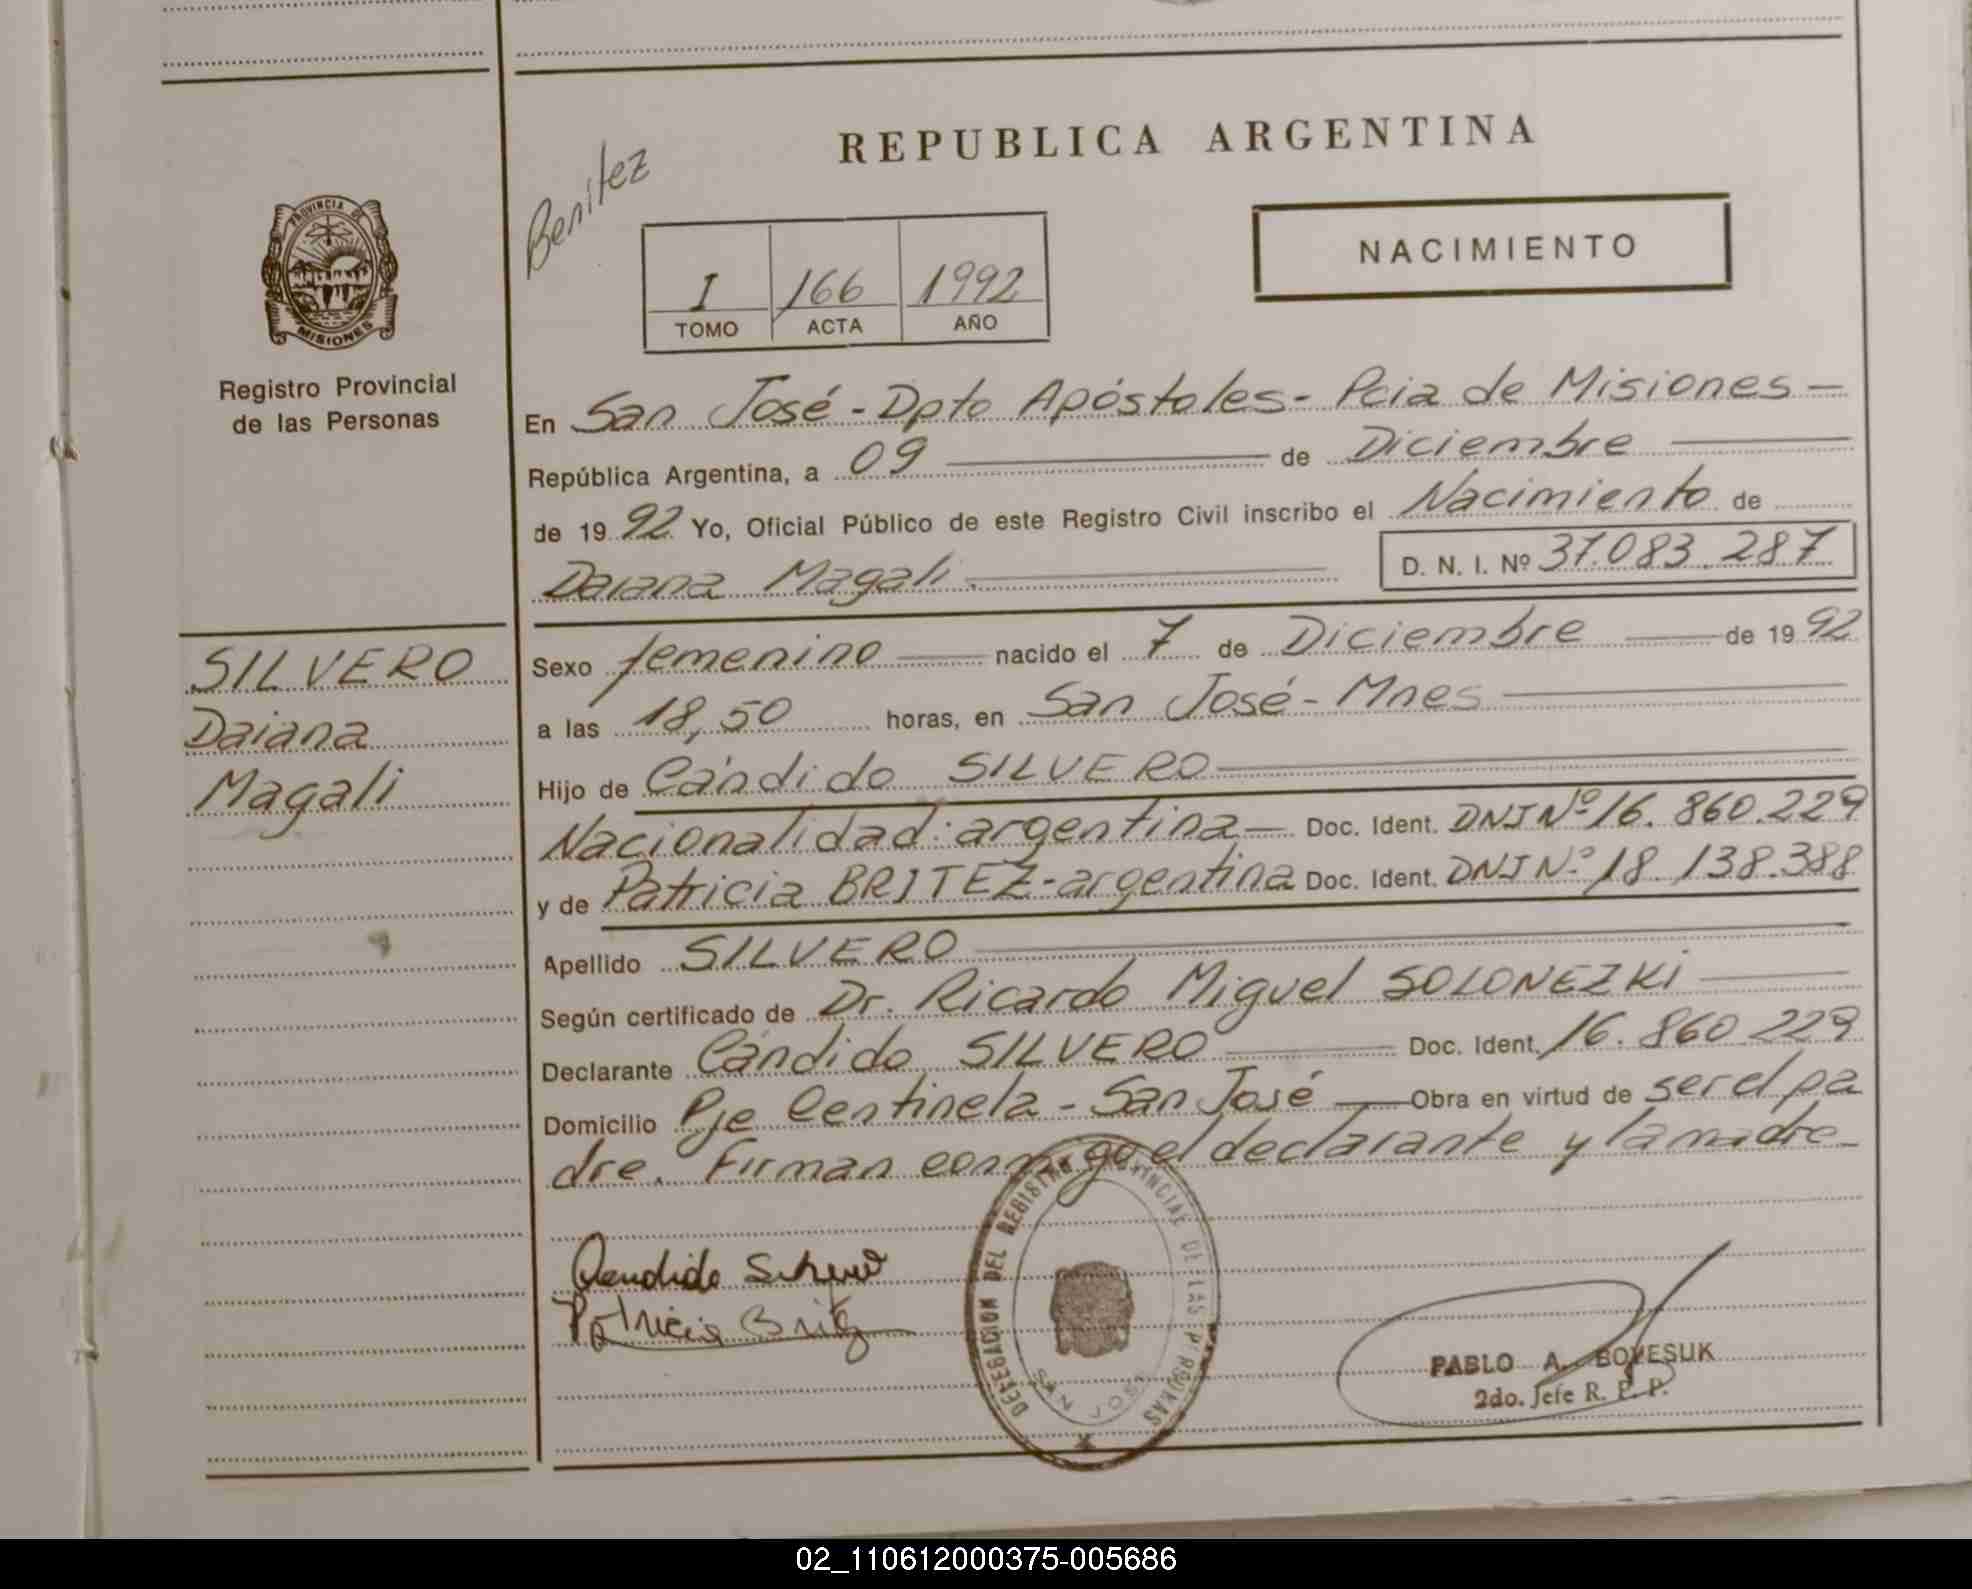 REPUBLICA ARGENTINA
Benitez
PROVINCIA DE
MISIONES
Registro Provincial
de las Personas
I 166 1992
TOMO ACTA AÑO
NACIMIENTO
En San José - Dpto Apóstoles - Pcia de Misiones -
República Argentina, a 09 de Diciembre
de 1992 Yo, Oficial Público de este Registro Civil inscribo el Nacimiento de
Daiana Magali. D. N. I. Nº 37.083.287
SILVERO
Daiana
Magali
Sexo femenino nacido el 7 de Diciembre de 1992
a las 18,50 horas, en San José - Mnes
Hijo de Cándido SILVERO
Nacionalidad: argentina Doc. Ident. DNI Nº 16.860.229
y de Patricia BRITEZ - argentina Doc. Ident. DNI Nº 18.138.388
Apellido SILVERO
Según certificado de Dr. Ricardo Miguel SOLONEZKI
Declarante Cándido SILVERO Doc. Ident. 16.860.229
Domicilio Pje Centinela - San José Obra en virtud de ser el pa
dre. Firman conmigo el declarante y la madre
Candido Silvero
Patricia Britez
DELEGACION DEL REGISTRO PROVINCIAL DE LAS PERSONAS
SAN JOSE
PABLO A. BOYESUK
2do. Jefe R. P. P.
02_110612000375-005686